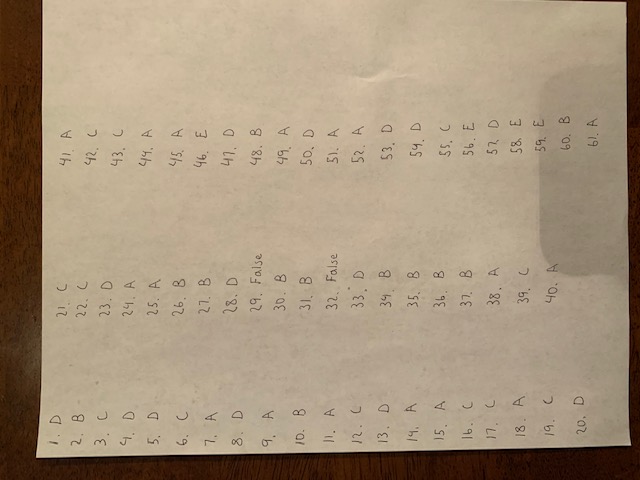 1. D
2. B
3. C
4. D
5. D
6. C
7. A
8. D
9. A
10. B
11. A
12. C
13. D
14. A
15. A
16. C
17. C
18. A
19. C
20. D
21. C
22. C
23. D
24. A
25. A
26. B
27. B
28. D
29. False
30. B
31. B
32. False
33. D
34. B
35. B
36. B
37. B
38. A
39. C
40. A
41. A
42. C
43. C
44. A
45. A
46. E
47. D
48. B
49. A
50. D
51. A
52. A
53. D
54. D
55. C
56. E
57. D
58. E
59. E
60. B
61. A